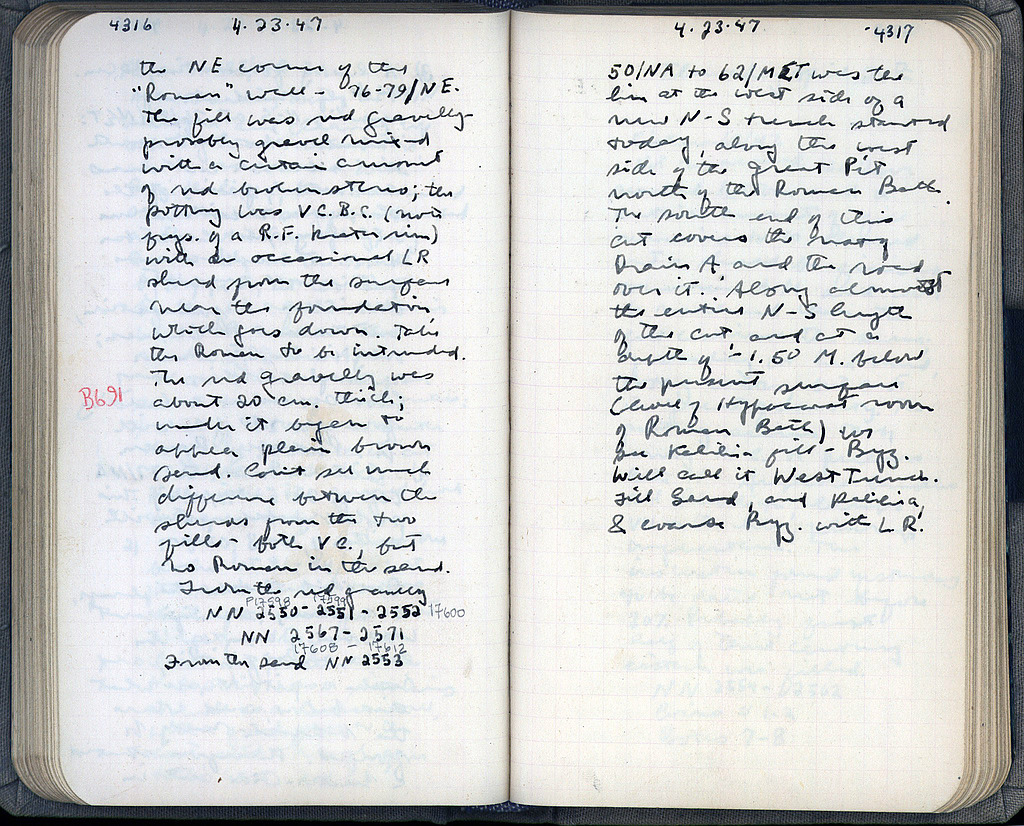 4316 4.23.47
the NE corner of the
"Roman" well - 76-79/NE.
The fill was red gravelly -
probably gravel mixed
with a certain amount
of red brown stereo; the
pottery was V C. B.C. (note
frgs. of a R.F. krater rim)
with an occasional LR
sherd from the surface
near the foundation
which goes down. Take
the Roman to be intruded.
The red gravelly was
B691
about 20 cm. thick;
under it began to
appear plain brown
sand. Can't see much
difference between the
sherds from the two
fills - both V C., but
no Roman in the sand.
From the red gravelly
P17598 17599
NN 2550-2551-2552 17600
NN 2567-2571
17608 - 17612
From the sand NN 2553
4.23.47 4317
50/NA to 62/MET was the
line at the west side of a
new N-S trench started
today, along the west
side of the Great Pit
north of the Roman Bath.
The south end of this
cut covers the
Drain A and the road
over it. Along almost
the entire N-S length
of the cut and at a
depth of - 1.50 M. below
the present surface
(level of Hypocaust room
of Roman Bath) is
fill - Byz.
Will call it West Trench.
Fill Sand, and
& coarse Byz. with L R.